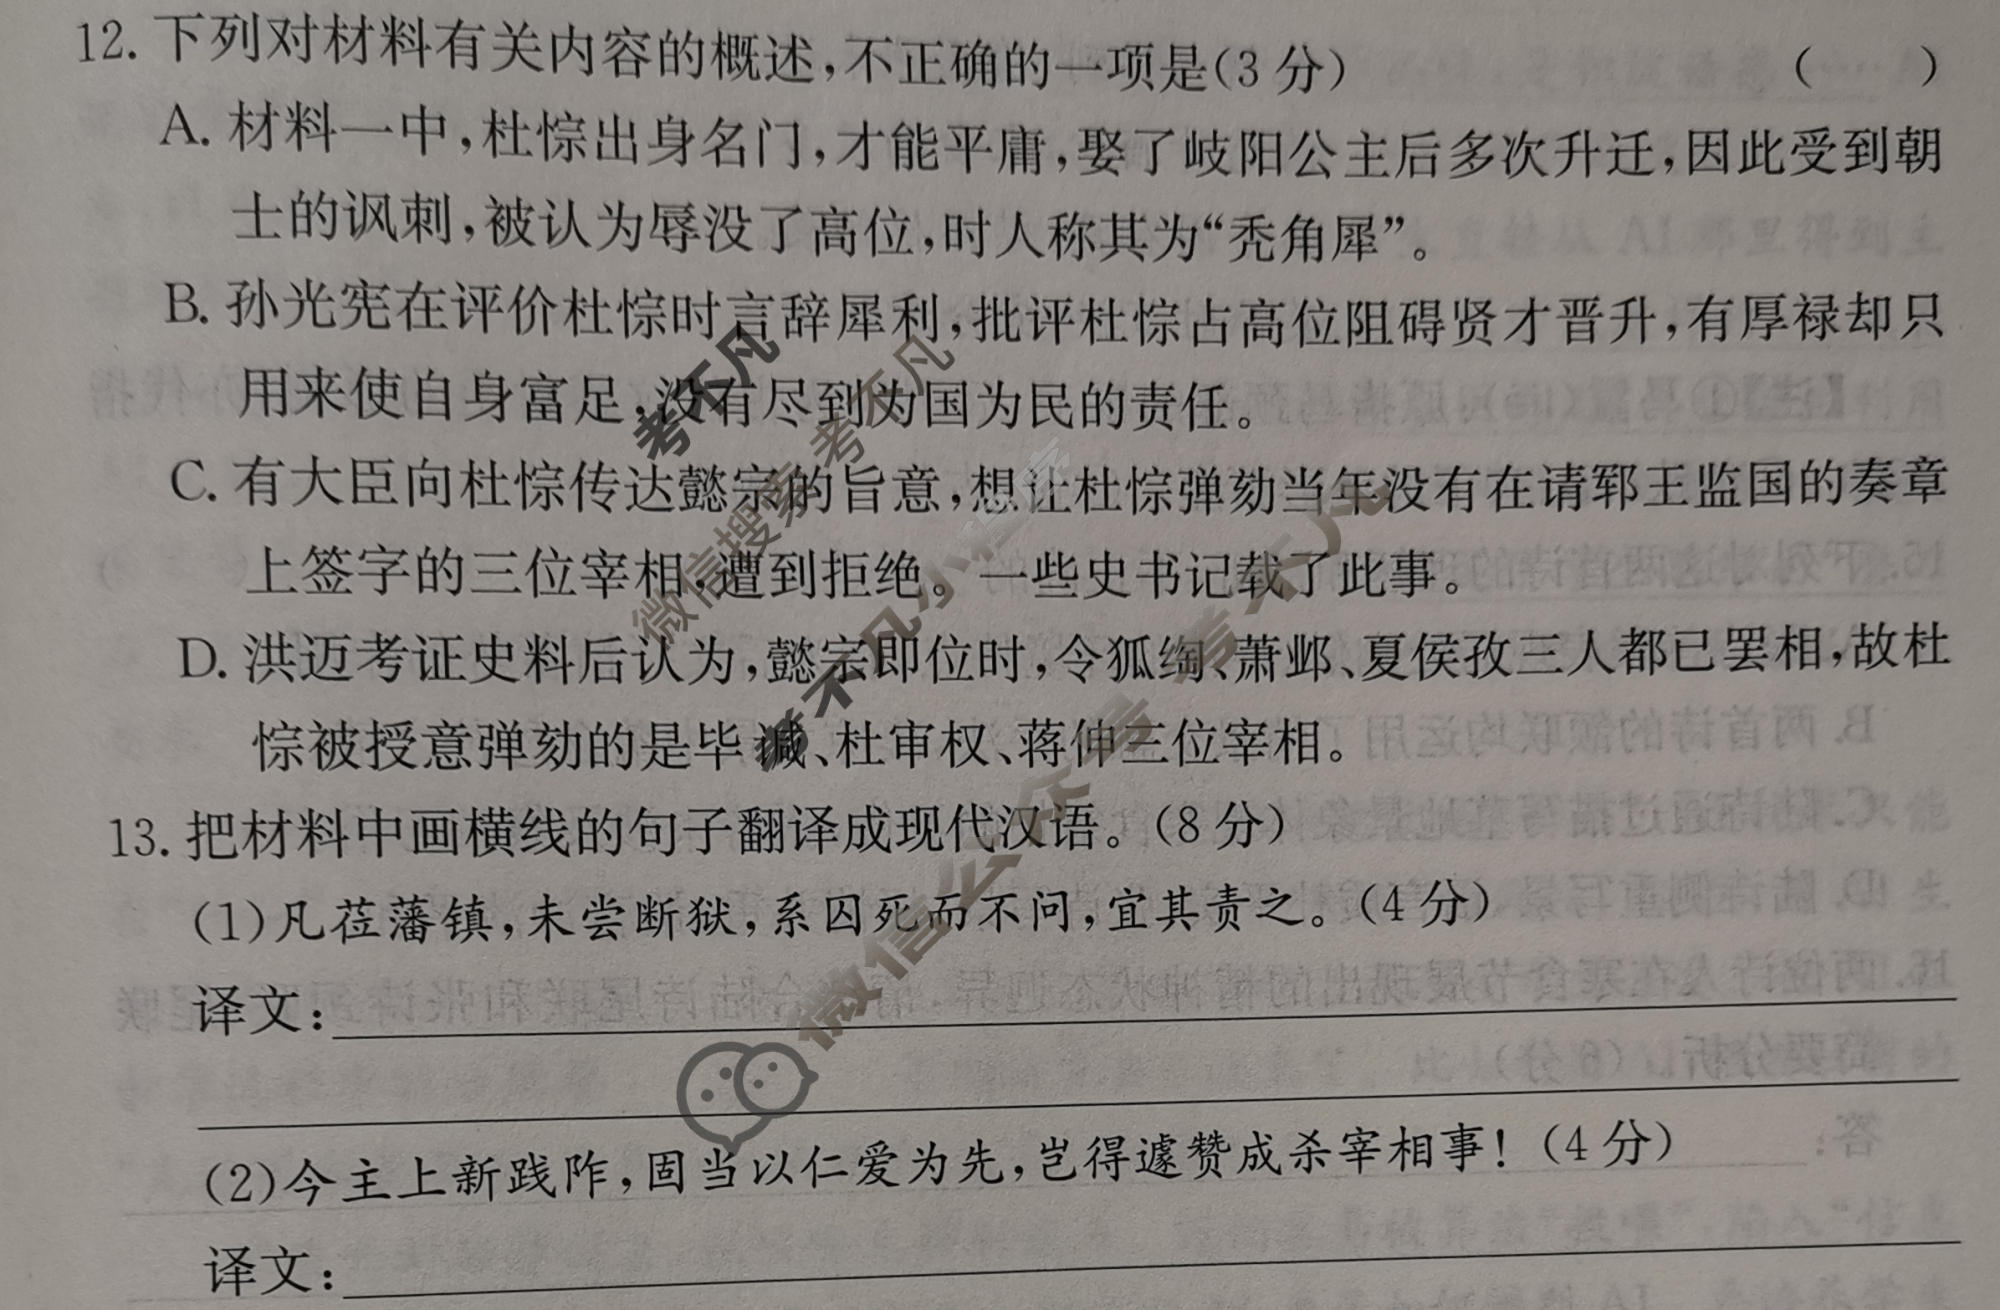 12. 下列对材料有关内容的概述,不正确的一项是(3分) ( )
A. 材料一中,杜悰出身名门,才能平庸,娶了岐阳公主后多次升迁,因此受到朝
士的讽刺,被认为辱没了高位,时人称其为“秃角犀”。
B. 孙光宪在评价杜悰时言辞犀利,批评杜悰占高位阻碍贤才晋升,有厚禄却只
用来使自身富足,没有尽到为国为民的责任。
C. 有大臣向杜悰传达懿宗的旨意,想让杜悰弹劾当年没有在请郓王监国的奏章
上签字的三位宰相,遭到拒绝。一些史书记载了此事。
D. 洪迈考证史料后认为,懿宗即位时,令狐绹、萧邺、夏侯孜三人都已罢相,故杜
悰被授意弹劾的是毕諴、杜审权、蒋伸三位宰相。
13. 把材料中画横线的句子翻译成现代汉语。(8分)
(1)凡莅藩镇,未尝断狱,系囚死而不问,宜其责之。(4分)
译文:
(2)今主上新践阼,固当以仁爱为先,岂得遽赞成杀宰相事!(4分)
译文:
考不凡
微信搜索 考不凡
考不凡小程序
微信公众号 考不凡